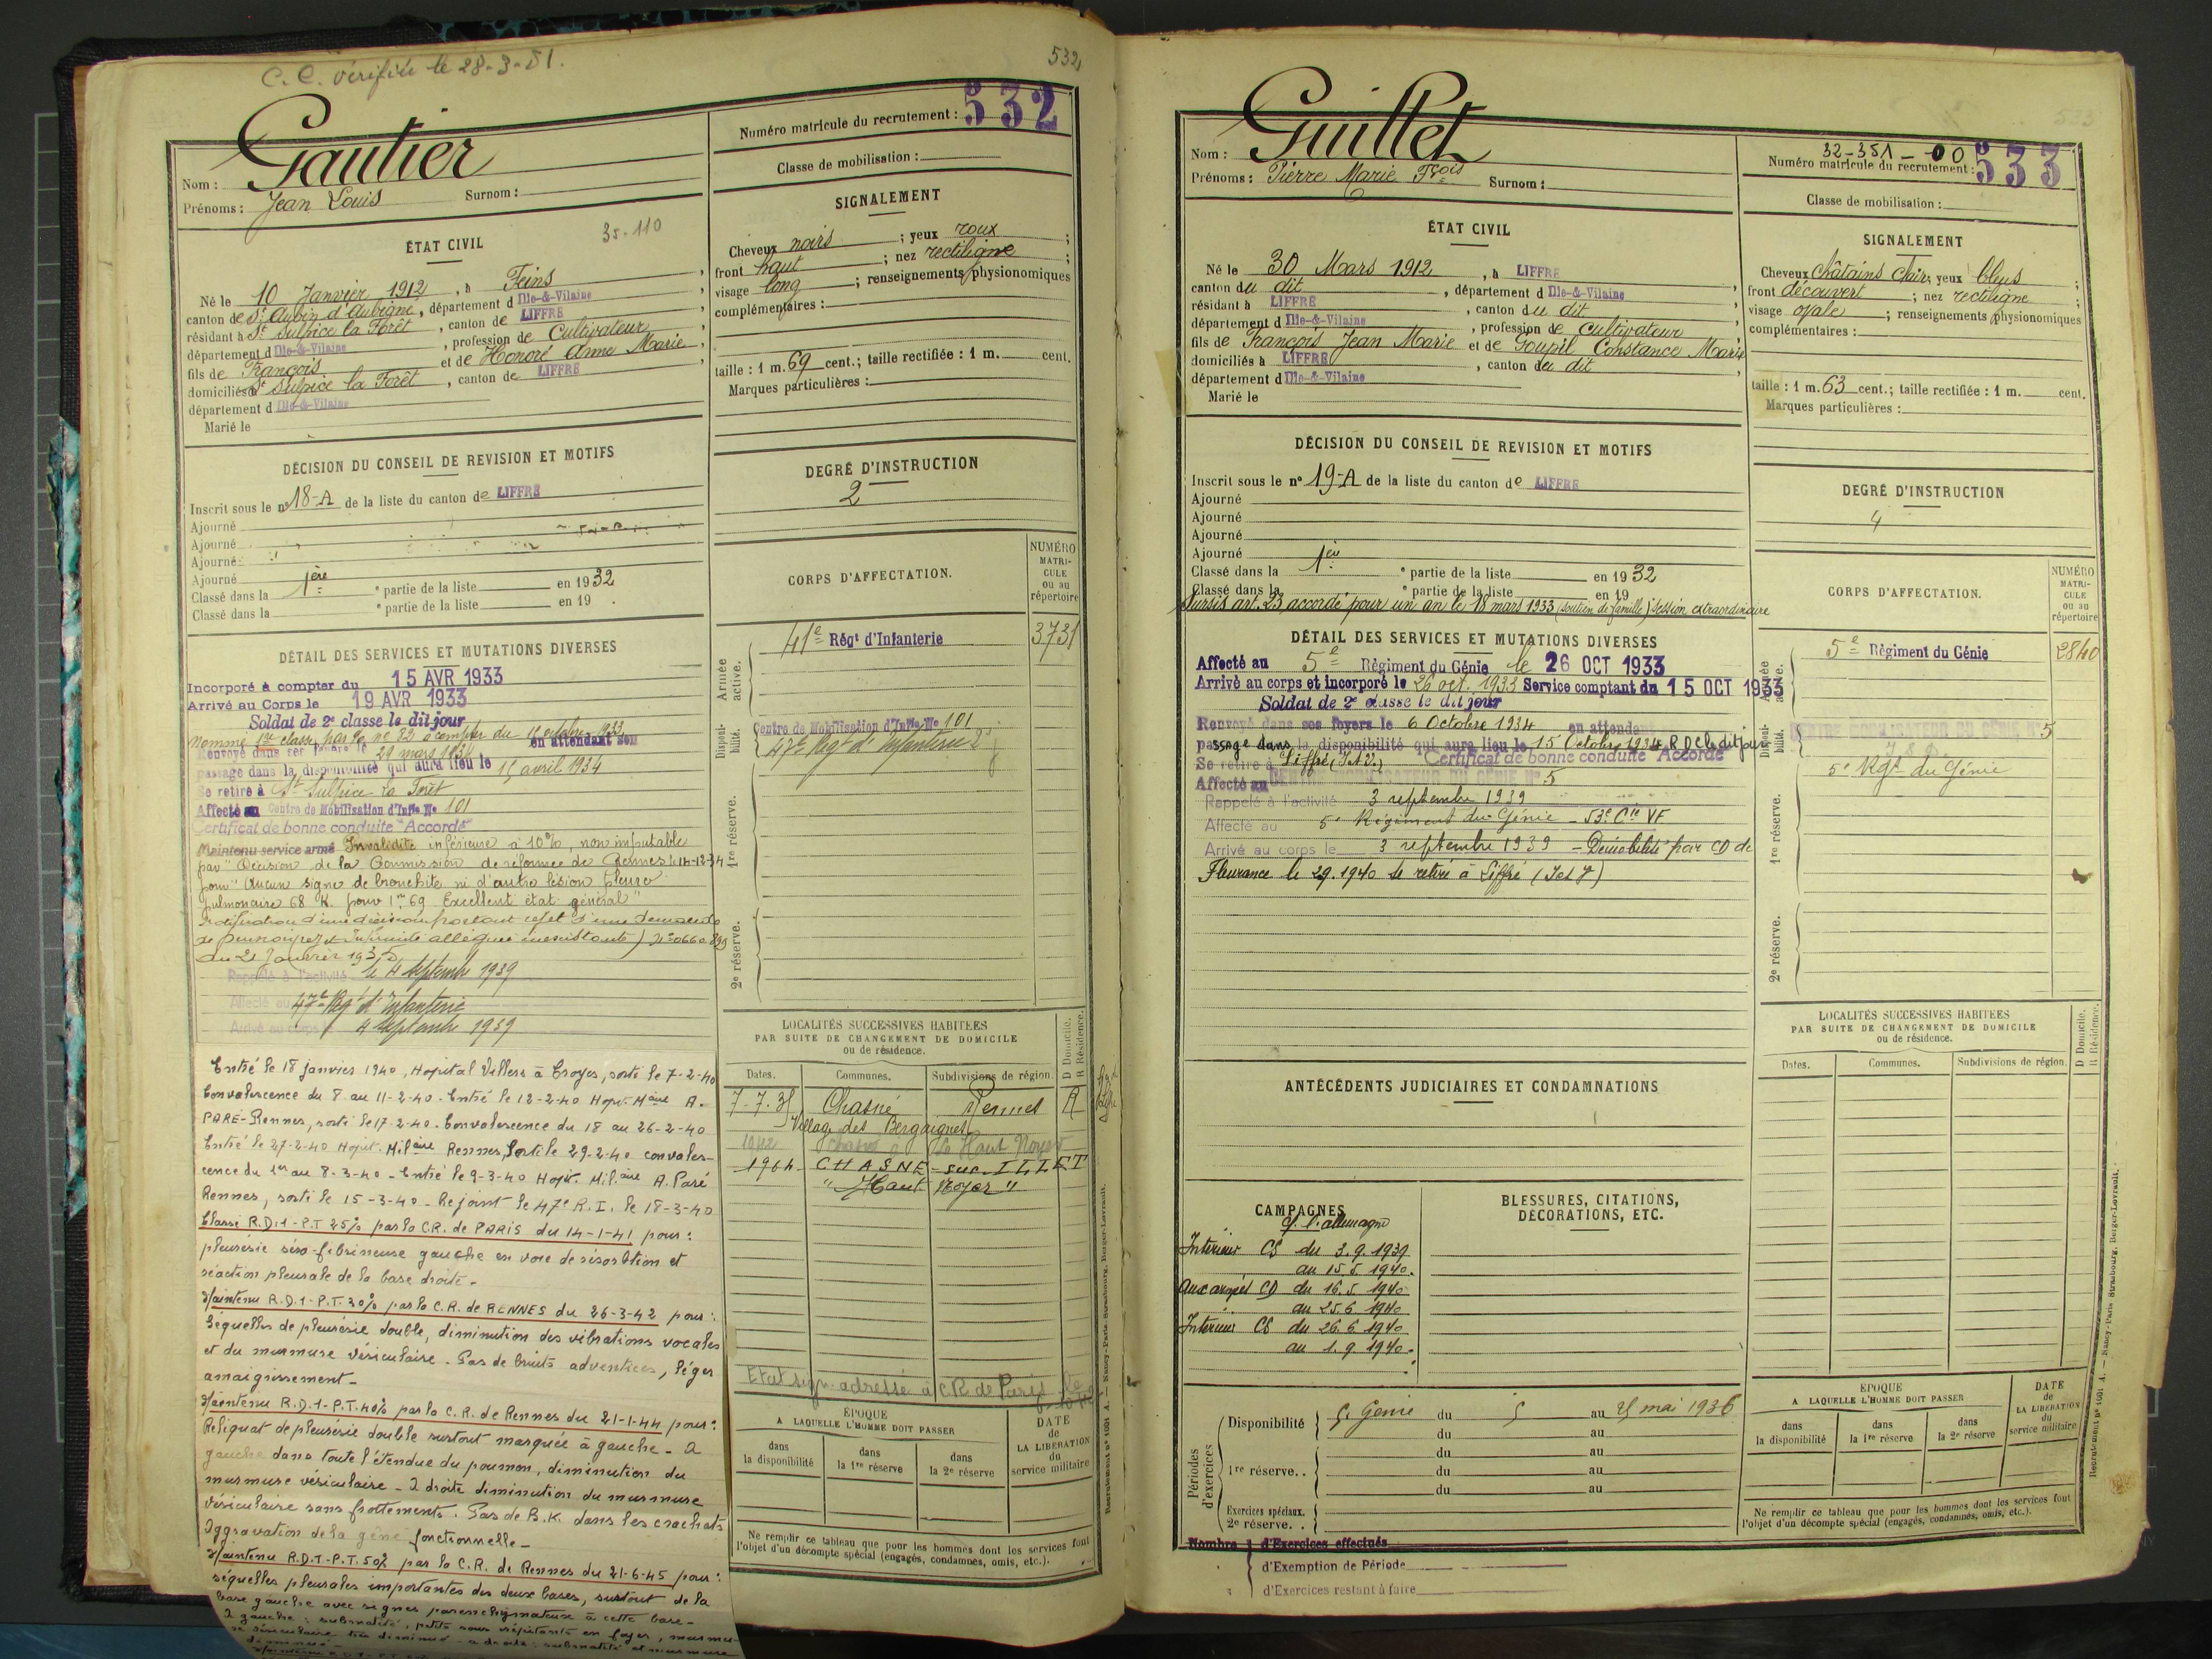 C.C. vérifiée le 28-3-51.
532
Numéro matricule du recrutement : 532
Classe de mobilisation :
Nom : Gautier
Prénoms : Jean Louis Surnom :
ÉTAT CIVIL
35-110
Né le 10 Janvier 1912, à Feins,
canton de St Aubin d'Aubigné, département d Ille-&-Vilaine
résidant à St Sulpice la Forêt, canton de LIFFRÉ
département d Ille-&-Vilaine, profession de Cultivateur,
fils de François et de Honoré Anne Marie,
domiciliés à St Sulpice la Forêt, canton de LIFFRÉ
département d Ille-&-Vilaine
Marié le
SIGNALEMENT
Cheveux noirs ; yeux roux ;
front haut ; nez rectiligne ;
visage long ; renseignements physionomiques
complémentaires :
taille : 1 m. 69 cent.; taille rectifiée : 1 m. cent.
Marques particulières :
DÉCISION DU CONSEIL DE REVISION ET MOTIFS
Inscrit sous le n° 18-A de la liste du canton de LIFFRÉ
Ajourné
Ajourné
Ajourné
Ajourné
Classé dans la 1ère partie de la liste en 1932
Classé dans la partie de la liste en 19
DEGRÉ D'INSTRUCTION
2
CORPS D'AFFECTATION.
NUMÉRO
MATRI-
CULE
ou au
répertoire
Armée
active.
41e Régt d'Infanterie 3731
Disponi-
bilité.
Centre de Mobilisation d'Infie No 101
47e Régt d'Infanterie
1re réserve.
2e réserve.
DÉTAIL DES SERVICES ET MUTATIONS DIVERSES
Incorporé à compter du 15 AVR 1933
Arrivé au Corps le 19 AVR 1933
Soldat de 2e classe le dit jour
Nommé 1re classe par O. no 82 à compter du 16 octobre 1933
Renvoyé dans ses foyers le 29 mars 1934 en attendant son
passage dans la disponibilité qui aura lieu le 15 avril 1934
Se retire à St Sulpice la Forêt
Affecté au Centre de Mobilisation d'Infie No 101
Certificat de bonne conduite "Accordé"
Maintenu service armé Invalidité inférieure à 10%, non imputable
par "Décision de la Commission de réforme de Rennes le 14-12-34
pour "Aucun signe de bronchite ni d'autre lésion pleuro
pulmonaire 68 K. pour 1m69 Excellent état général"
Notification d'une décision portant rejet d'une demande
du 21 Janvier 1935
Rappelé à l'activité le 4 Septembre 1939
Affecté au 47e Rgt d'Infanterie
Arrivé au corps 4 Septembre 1939
Entré le 18 janvier 1940, Hopital Villers à Troyes, sorti le 7-2-40
Convalescence du 8 au 11-2-40. Entré le 12-2-40 Hopit. Maire A.
PARE-Rennes, sorti le 17-2-40. Convalescence du 18 au 26-2-40
Entré le 27-2-40 Hopit. Milaire Rennes, Sorti le 29-2-40 convales-
cence du 1er au 8-3-40. Entré le 9-3-40 Hopit. Milaire A. Paré
Rennes, sorti le 15-3-40. Rejoint le 47e R.I. le 18-3-40
Classé R.D.1-P.T 25% par la C.R. de PARIS du 14-1-41 pour :
pleurésie séro-fibrineuse gauche en voie de résorbtion et
réaction pleurale de la base droite.
Maintenu R.D.1-P.T. 30% par la C.R. de RENNES du 26-3-42 pour :
Séquelles de pleurésie double, diminution des vibrations vocales
et du murmure vésiculaire. Pas de bruits adventices, léger
amaigrissement.
Maintenu R.D.1-P.T. 40% par la C.R. de Rennes du 21-1-44 pour :
Reliquat de pleurésie double surtout marquée à gauche. A
gauche dans toute l'étendue du poumon, diminution du
murmure vésiculaire. A droite diminution du murmure
vésiculaire sans frottements. Pas de B.K. dans les crachats
Aggravation de la gêne fonctionnelle.
Maintenu R.D.T-P.T. 50% par la C.R. de Rennes du 21-6-45 pour :
séquelles pleurales importantes des deux bases, surtout de la
base gauche avec signes parenchymateux à cette base.
A gauche : submatité, petits sous crépitants en foyer, murmu-
re vésiculaire très diminué - à droite : submatité et murmure
diminué.
LOCALITÉS SUCCESSIVES HABITÉES
PAR SUITE DE CHANGEMENT DE DOMICILE
ou de résidence.
D Domicile.
R Résidence.
Dates. Communes. Subdivisions de région.
7-7-35 Chasné Rennes R
Village des Bergaignes
1942 Chasné à Le Haut Noyer
1964 CHASNÉ-sur-ILLET
"Haut Noyer"
Etat sign. adressé à C.R. de Paris le
ÉPOQUE
A LAQUELLE L'HOMME DOIT PASSER
dans
la disponibilité
dans
la 1re réserve
dans
la 2e réserve
DATE
de
LA LIBÉRATION
du
service militaire
Ne remplir ce tableau que pour les hommes dont les services font
l'objet d'un décompte spécial (engagés, condamnés, omis, etc.).
Recrutement n° 1001 A. — Nancy-Paris-Strasbourg, Berger-Levrault.
533
32-351-00
Numéro matricule du recrutement : 533
Classe de mobilisation :
Nom : Guillet
Prénoms : Pierre Marie Fçois Surnom :
ÉTAT CIVIL
Né le 30 Mars 1912, à LIFFRÉ
canton du dit, département d Ille-&-Vilaine
résidant à LIFFRÉ, canton du dit
département d Ille-&-Vilaine, profession de Cultivateur
fils de François Jean Marie et de Goupil Constance Marie
domiciliés à LIFFRÉ, canton du dit
département d Ille-&-Vilaine
Marié le
SIGNALEMENT
Cheveux châtains clairs yeux bleus ;
front découvert ; nez rectiligne ;
visage ovale ; renseignements physionomiques
complémentaires :
taille : 1 m. 63 cent.; taille rectifiée : 1 m. cent.
Marques particulières :
DÉCISION DU CONSEIL DE REVISION ET MOTIFS
Inscrit sous le n° 19-A de la liste du canton de LIFFRÉ
Ajourné
Ajourné
Ajourné
Ajourné
Classé dans la 1ère partie de la liste en 1932
Classé dans la partie de la liste en 19
Sursis art. 23 accordé pour un an le 18 mars 1933 (soutien de famille) session extraordinaire
DEGRÉ D'INSTRUCTION
4
CORPS D'AFFECTATION.
NUMÉRO
MATRI-
CULE
ou au
répertoire
Armée
active.
5e Régiment du Génie 2840
Disponi-
bilité.
CENTRE MOBILISATEUR DU GÉNIE N° 5
5e Rgt du Génie
1re réserve.
2e réserve.
DÉTAIL DES SERVICES ET MUTATIONS DIVERSES
Affecté au 5e Régiment du Génie le 26 OCT 1933
Arrivé au corps et incorporé le 26 oct. 1933 Service comptant du 15 OCT 1933
Soldat de 2e classe le dit jour
Renvoyé dans ses foyers le 6 Octobre 1934 en attendant
passage dans la disponibilité qui aura lieu le 15 Octobre 1934 R D C le dit jour
Se retire à Liffré (I.&V.) Certificat de bonne conduite Accordé
Affecté au CENTRE MOBILISATEUR DU GÉNIE N° 5
Rappelé à l'activité 3 septembre 1939
Affecté au 5e Régiment du Génie - 53e Cie VF
Arrivé au corps le 3 septembre 1939 - Démobilisé par CD de
Fleurance le 2.9.1940 se retire à Liffré (I et V)
ANTÉCÉDENTS JUDICIAIRES ET CONDAMNATIONS
CAMPAGNES
c/. l'allemagne
Intérieur CS du 3.9.1939
au 15.5.1940.
Aux armées CD du 16.5.1940
au 25.6.1940
Intérieur CS du 26.6.1940
au 1.9.1940.
BLESSURES, CITATIONS,
DÉCORATIONS, ETC.
Périodes
d'exercices
Disponibilité 5e Génie du 5 au 25 mai 1936
du au
1re réserve.. du au
du au
du au
Exercices spéciaux.
2e réserve..
Nombre d'Exercices effectués
d'Exemption de Période
d'Exercices restant à faire
LOCALITÉS SUCCESSIVES HABITÉES
PAR SUITE DE CHANGEMENT DE DOMICILE
ou de résidence.
D Domicile.
R Résidence.
Dates. Communes. Subdivisions de région.
ÉPOQUE
A LAQUELLE L'HOMME DOIT PASSER
dans
la disponibilité
dans
la 1re réserve
dans
la 2e réserve
DATE
de
LA LIBÉRATION
du
service militaire
Ne remplir ce tableau que pour les hommes dont les services font
l'objet d'un décompte spécial (engagés, condamnés, omis, etc.).
Recrutement n° 1001 A. — Nancy-Paris-Strasbourg, Berger-Levrault.